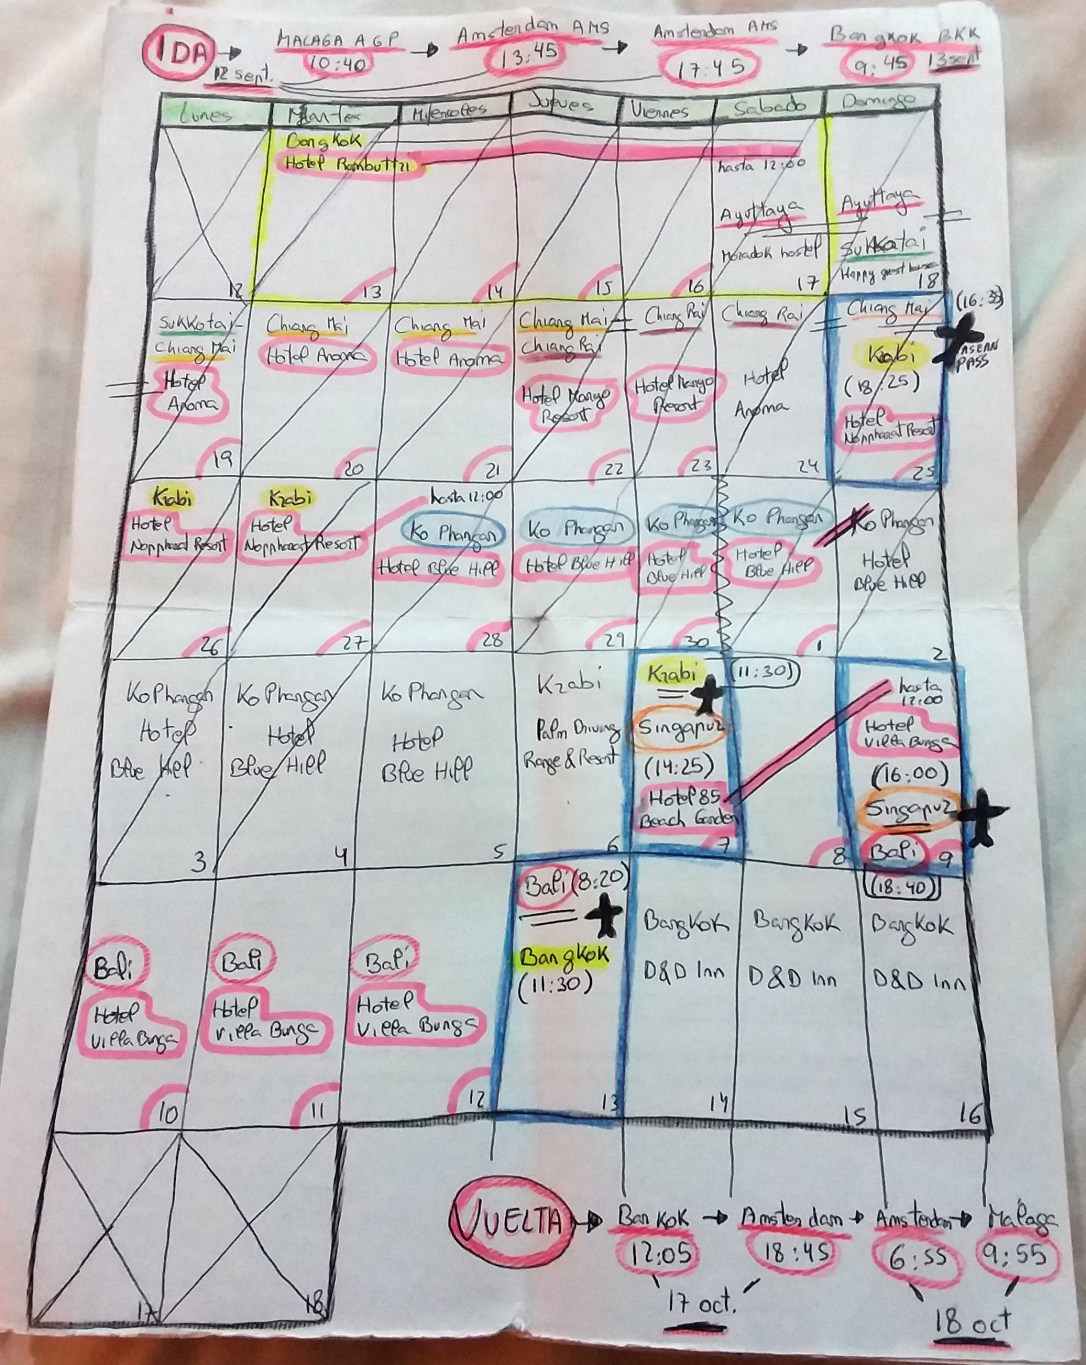 IDA
MALAGA AGP
Amsterdam AMS
Amsterdam AMS
Bangkok BKK
12 sept.
10:40
13:45
17:45
9:45
13 sept
Lunes
Martes
Miercoles
Jueves
Viernes
Sabado
Domingo
12
Bangkok
Hotel Rambuttri
13
14
15
16
hasta 12:00
Ayuttaya
Moradok hostel
17
Ayuttaya
Sukkotai
Happy guest house
18
Sukkotai-
Chiang Mai
Hotel
Aroma
19
Chiang Mai
Hotel Aroma
20
Chiang Mai
Hotel Aroma
21
Chiang Mai
Chiang Rai
Hotel Nanyo
Resort
22
Chiang Rai
Hotel Nanyo
Resort
23
Chiang Rai
Hotel
Aroma
24
Chiang Mai
(16:35)
ASEAN
PASS
Krabi
(18:25)
Hotel
Noppharat Resort
25
Krabi
Hotel
Noppharat Resort
26
Krabi
Hotel
Noppharat Resort
27
hasta 12:00
Ko Phangan
Hotel Blue Hill
28
Ko Phangan
Hotel Blue Hill
29
Ko Phangan
Hotel
Blue Hill
30
Ko Phangan
Hotel
Blue Hill
1
Ko Phangan
Hotel
Blue Hill
2
Ko Phangan
Hotel
Blue Hill
3
Ko Phangan
Hotel
Blue Hill
4
Ko Phangan
Hotel
Blue Hill
5
Krabi
Palm Driving
Range & Resort
6
Krabi
(11:30)
Singapur
(14:25)
Hotel 85
Beach Garden
7
8
hasta
12:00
Hotel
Villa Bunga
(16:00)
Singapur
Bali
9
(18:40)
Bali
Hotel
Villa Bunga
10
Bali
Hotel
Villa Bunga
11
Bali
Hotel
Villa Bunga
12
Bali (8:20)
Bangkok
(11:30)
13
Bangkok
D&D Inn
14
Bangkok
D&D Inn
15
Bangkok
D&D Inn
16
17
18
VUELTA
Bankok
Amsterdam
Amsterdam
Málaga
12:05
18:45
6:55
9:55
17 oct.
18 oct